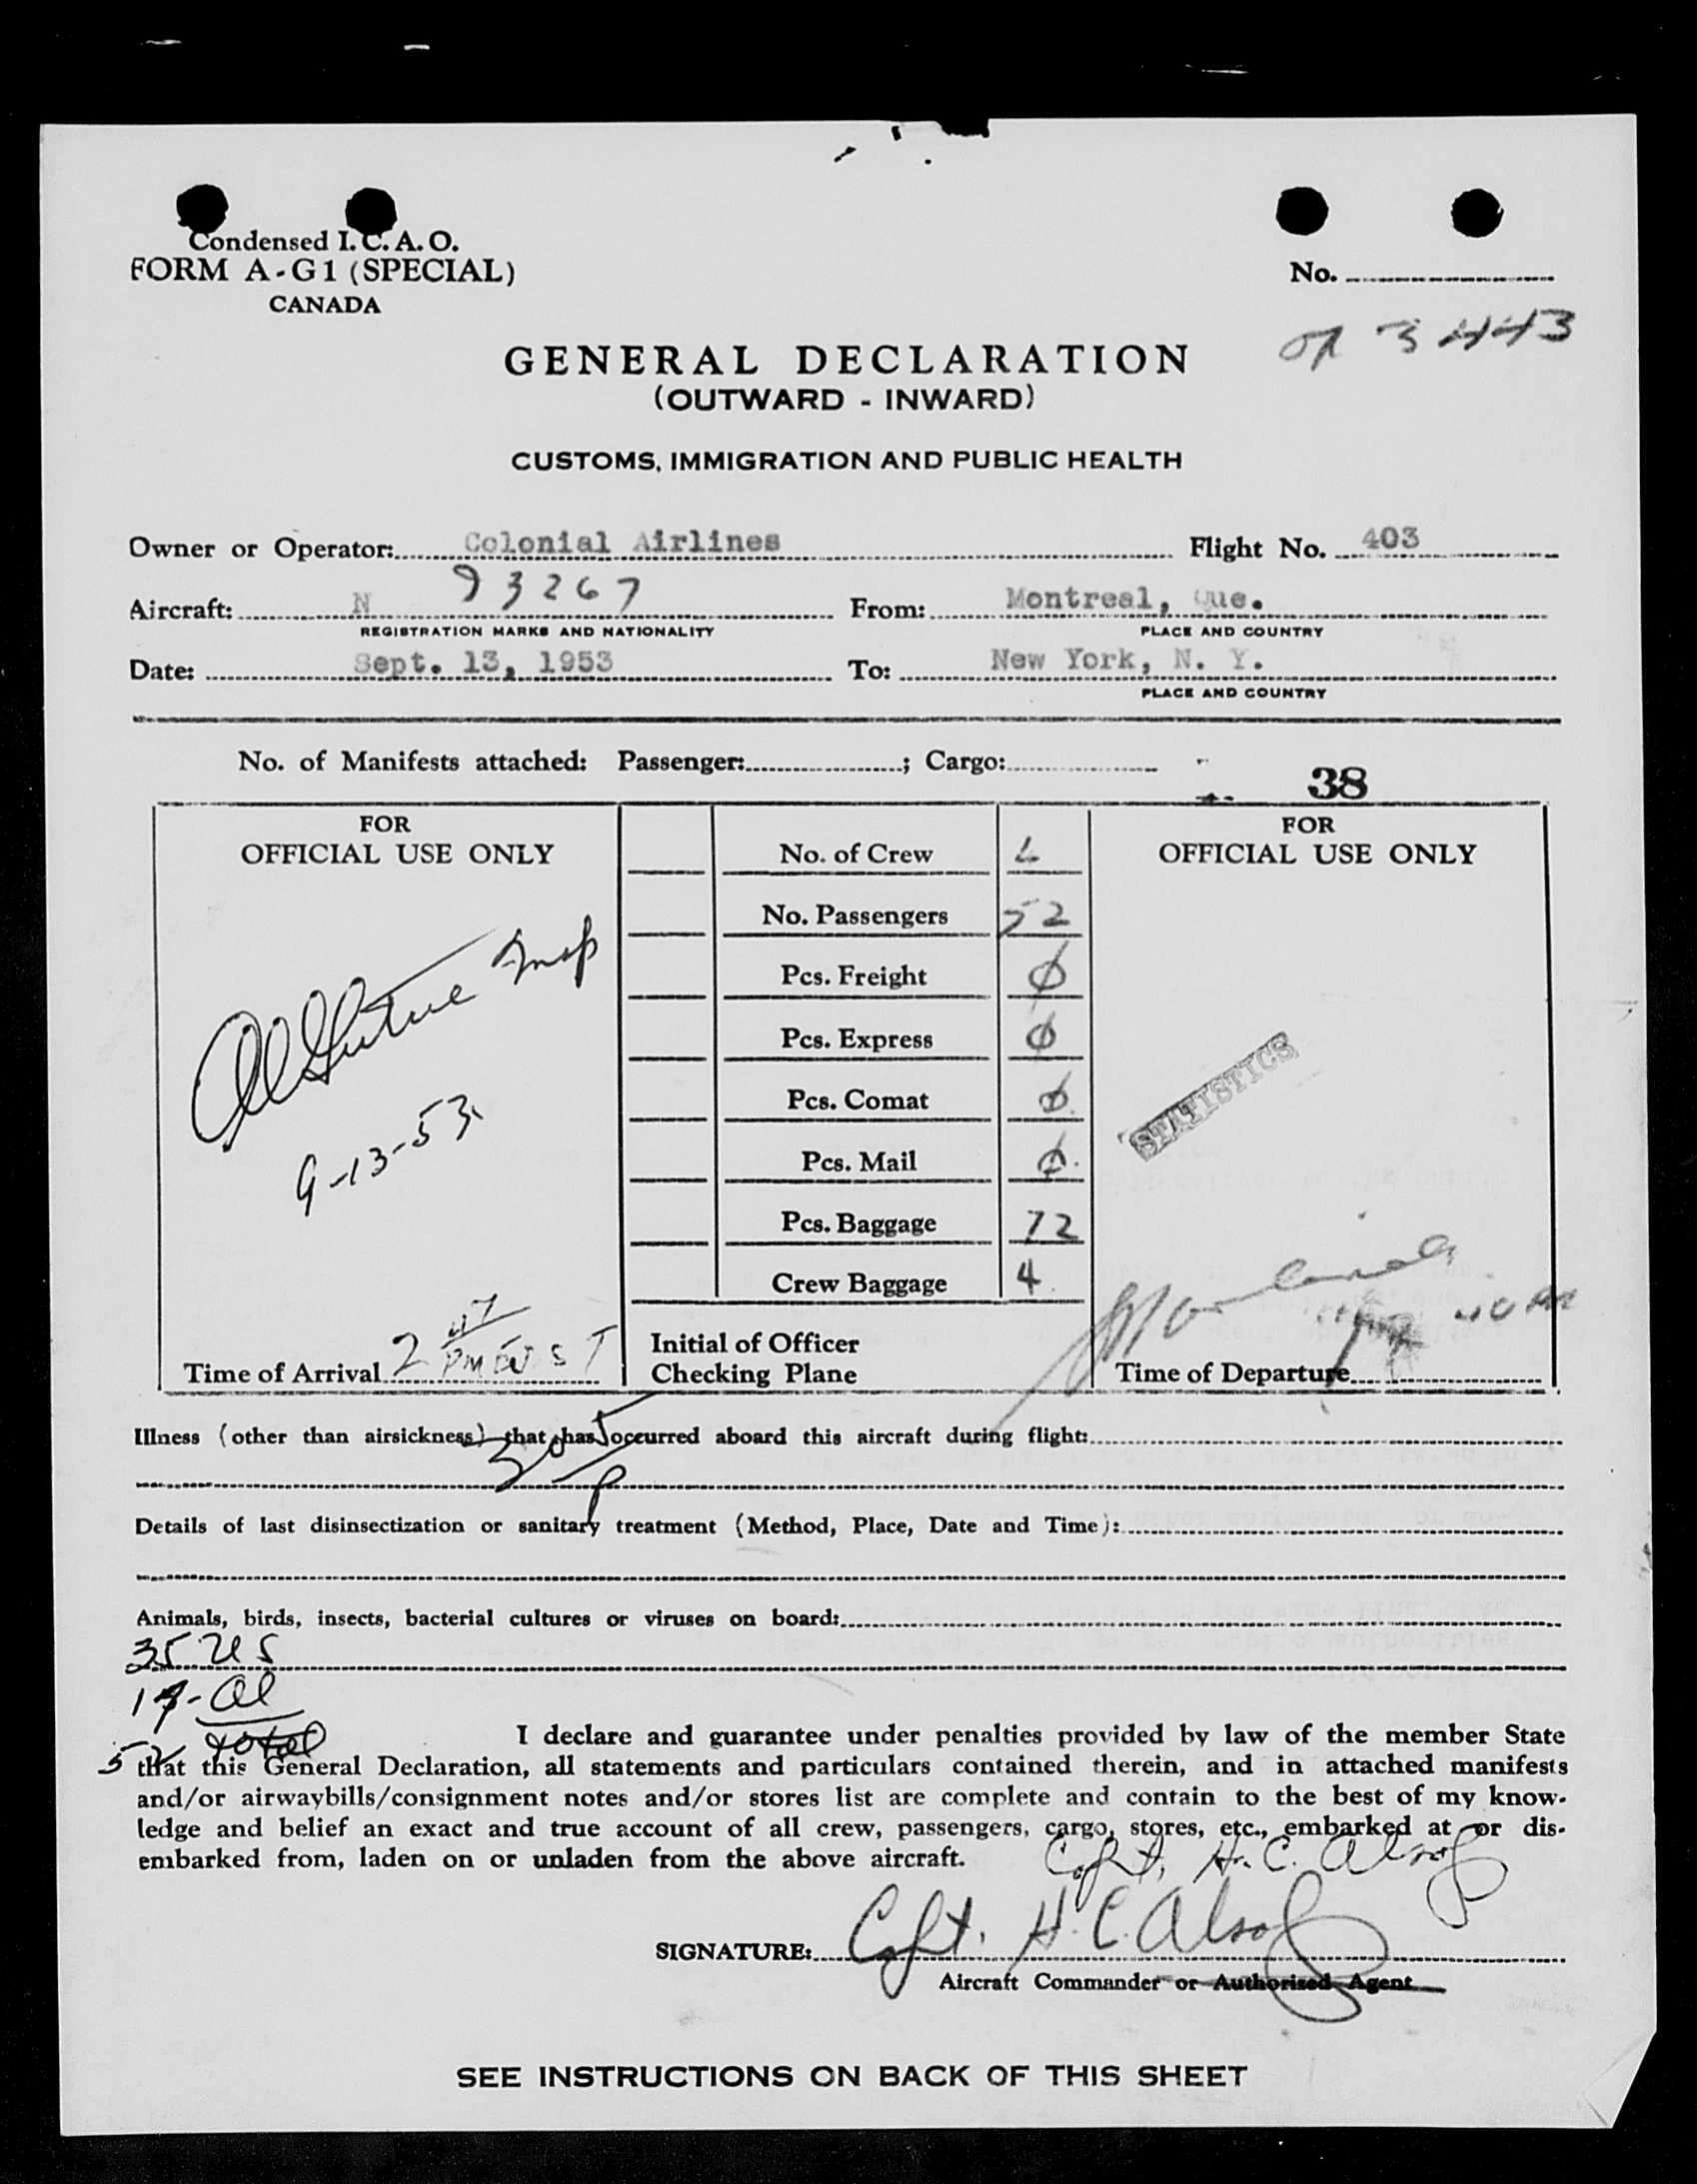 Condensed I. C. A. O.
FORM A-G1 (SPECIAL)
CANADA
No.
3443
GENERAL DECLARATION
(OUTWARD - INWARD)
CUSTOMS, IMMIGRATION AND PUBLIC HEALTH
Owner or Operator: Colonial Airlines Flight No. 403
Aircraft: N 93267 From: Montreal, Que.
REGISTRATION MARKS AND NATIONALITY PLACE AND COUNTRY
Date: Sept. 13, 1953 To: New York, N. Y.
PLACE AND COUNTRY
No. of Manifests attached: Passenger: ; Cargo:
38
FOR
OFFICIAL USE ONLY
Insp
9-13-53
Time of Arrival 2 47 PM E S T
No. of Crew 4
No. Passengers 52
Pcs. Freight ϕ
Pcs. Express ϕ
Pcs. Comat ϕ
Pcs. Mail ϕ
Pcs. Baggage 72
Crew Baggage 4
Initial of Officer
Checking Plane
FOR
OFFICIAL USE ONLY
STATISTICS
Time of Departure
Illness (other than airsickness) that has occurred aboard this aircraft during flight:
305
P
Details of last disinsectization or sanitary treatment (Method, Place, Date and Time):
Animals, birds, insects, bacterial cultures or viruses on board:
35 US
17-al
52 total
I declare and guarantee under penalties provided by law of the member State
that this General Declaration, all statements and particulars contained therein, and in attached manifests
and/or airwaybills/consignment notes and/or stores list are complete and contain to the best of my know-
ledge and belief an exact and true account of all crew, passengers, cargo, stores, etc., embarked at or dis-
embarked from, laden on or unladen from the above aircraft.
Capt. H. C. Alsop
SIGNATURE: Capt. H. C. Alsop
Aircraft Commander or Authorized Agent
SEE INSTRUCTIONS ON BACK OF THIS SHEET